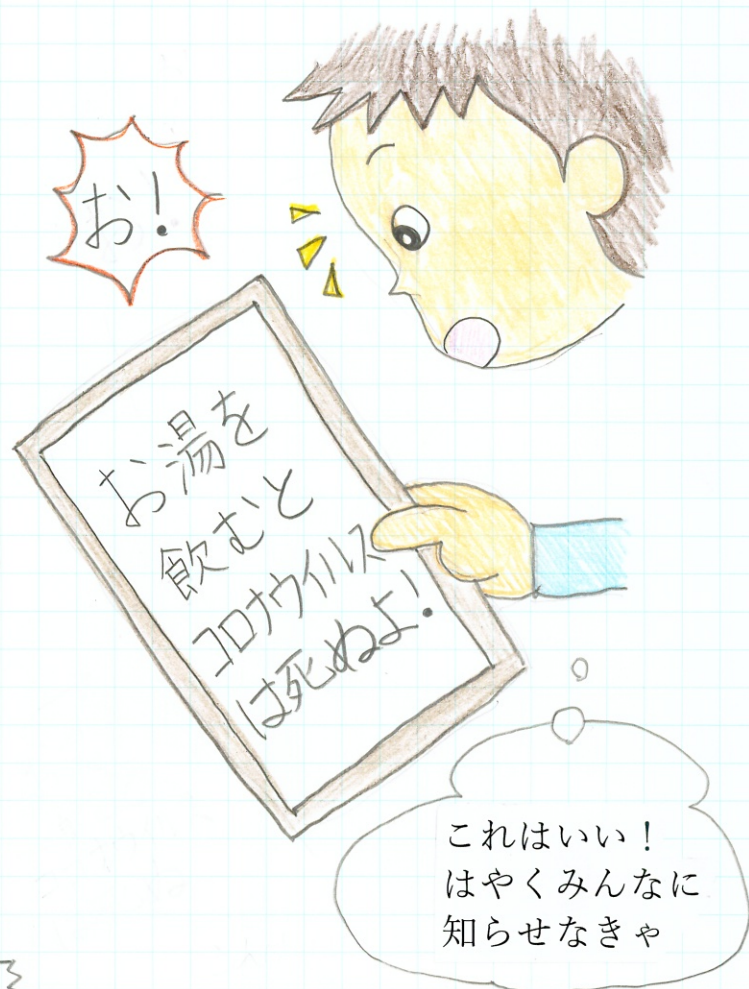 お！
お湯を
飲むと
コロナウイルス
は死ぬよ！
これはいい！
はやくみんなに
知らせなきゃ
3